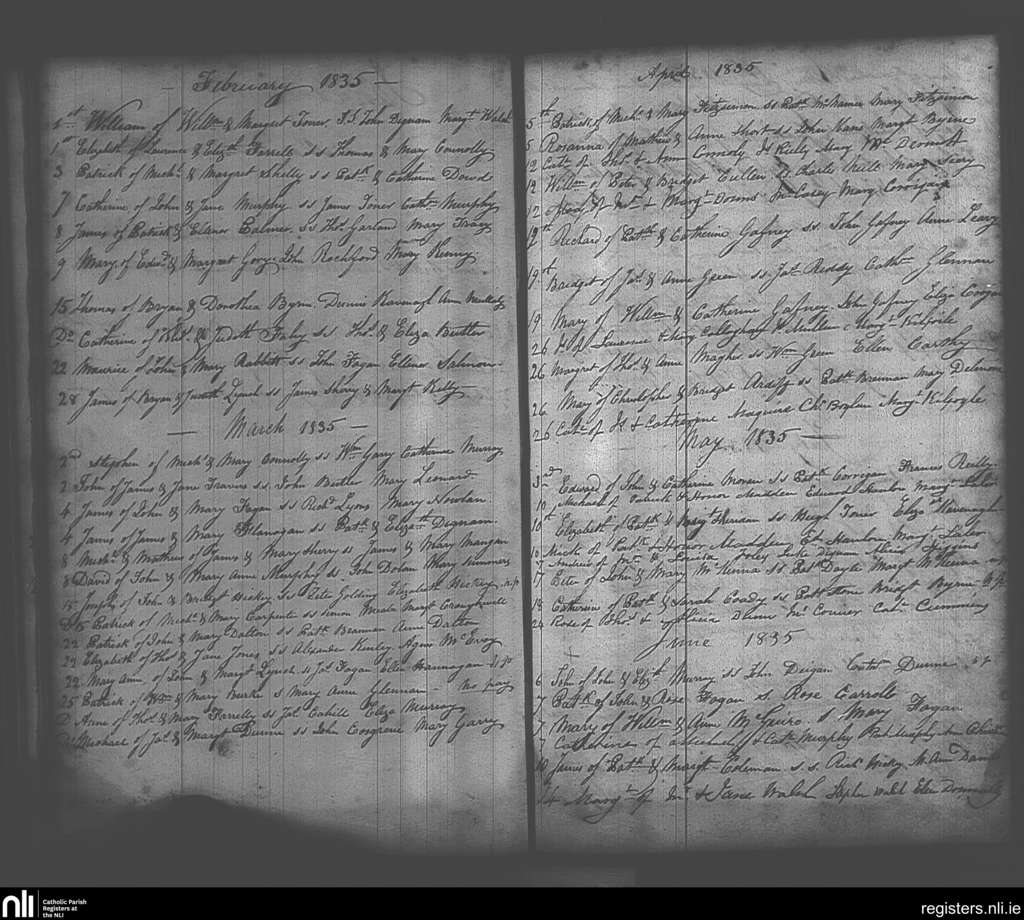 February 1835
1st William of Willm & Margret Toner. S.S John Dignam Margt Walsh
1st Elizabeth of Laurence & Elizth Farrell ss Thomas & Mary Connolly
3 Patrick of Michl & Margret Shelly ss Patk & Catherine Dowd
7 Catherine of John & Jane Murphy ss James Toner Cathn Murphy
8 James of Patrick & Ellenor Palmer ss Thos Garland Mary Tracy
9 Mary of Edwd & Margret John Rochford Mary Kenny
15 Thomas of Bryan & Dorothea Byrne Dennis Kavanagh Ann
Do Catherine of & Judith Fahy ss Thos & Eliza Butler
22 Maurice of John & Mary Rabbitt ss John Fagan Ellenor Salmon
28 James of Bryan & Judith Lynch ss James Sherry & Margt Kelly
March 1835
2nd Stephen of Michl & Mary Connolly ss Wm Gary Catherine Murray
2 John of James & Jane Travers ss. John Butler Mary Leonard
4 James of John & Mary Fagan ss Richd Lyons Mary Nowlan
4 James of James & Mary Flanagan ss Patk & Elizath Dignam
8 Michl & Mathew of James & Mary Sherry ss James & Mary Mangan
8 David of John & Mary Anne Murphy ss. John Dolan Mary Simmons
15 Joseph of John & Bridget Hickey ss Peter Golding Elizabeth Hickey n.p
15 Patrick of Michl & Mary Carpenter ss Simon Margt
22 Patrick of John & Mary Dalton ss Patk Brennan Anne Dalton
22 Elizabeth of Thos & Jane Jones ss Alexander Agnes McEvoy
22 Mary Ann of John & Margt Lynch ss Jas Fagan Ellen Hannagan
25 Patrick of Wm & Mary Burke s Mary Anne Glennan no pay
D Anne of Thos & Mary Farrelly ss Jas Cahill Eliza Murray
Michael of Jas & Margt Dunne ss John Cosgrave Mary Garry
April 1835
5th Patrick of Michl & Mary Fitzsimon ss Patk McNamee Mary Fitzsimon
5 Rosanna of Mathew & Anne Short ss John Margt Byrne
12 Cathn of Thos & Anne Connoly Js Reilly Mary McDermott
12 Willm of Peter & Bridget Cullen Charles Mary
12 of Jno & Margt Downs Mary Corrigan
12th Richard of Patk & Catherine Gafney ss. John Gafney Anne Leary
19th Bridget of Jas & Anne Green ss Jas Reddy Cathn Glennan
19 Mary of Willm & Catherine Gaffney John Gafney Eliza
26 of Laurence & Mary Callaghan Margt Kilfoile
26 Margret of Thos & Anne Magher ss Wm Green Ellen Carthy
26 Mary of Christopher & Bridget Ardiff ss Patk Brennan Mary Delmore
26 Cathn of Js & Catherine Maguire Chr Boylan Margt Kilfoyle
May 1835
3rd Edward of John & Catherine Moran ss Patk Corrigan Frances Reilly
10 Michael of Patrick & Honor Madden Edward Hanlon Margt Lalor
10th Elizabeth of Patk & Margt Sheridan ss Hugh Toner Eliza Kavanagh
10 Michl of Patk & Honor Madden Ed Hanlon Margt Lalor
7 Andrew of Jno & Foley Luke Dignam Alicia Higgins
7 Peter of John & Mary McKenna ss Patk Doyle Margt McKenna
18 Catherine of Patk & Sarah Coady ss Patk Bridgt Byrne n.p
24 Rose of Thos & Alicia Dunne Conroy Cathn Cummins
June 1835
6 John of John & Elizth Murray ss John Duigan Cathn Dunne
7 Patk of John & Rose Fagan s. Rose Carroll
7 Mary of Willm & Anne McGuire s Mary Fagan
7 Catherine of & Cathn Murphy
10 James of Patk & Margt Coleman s.s. Richd Hickey M. Ann
14 Margt of Jno & Jane Walsh Stephen Walsh Ellen Donnelly
nli
Catholic Parish
Registers at
the NLI
registers.nli.ie